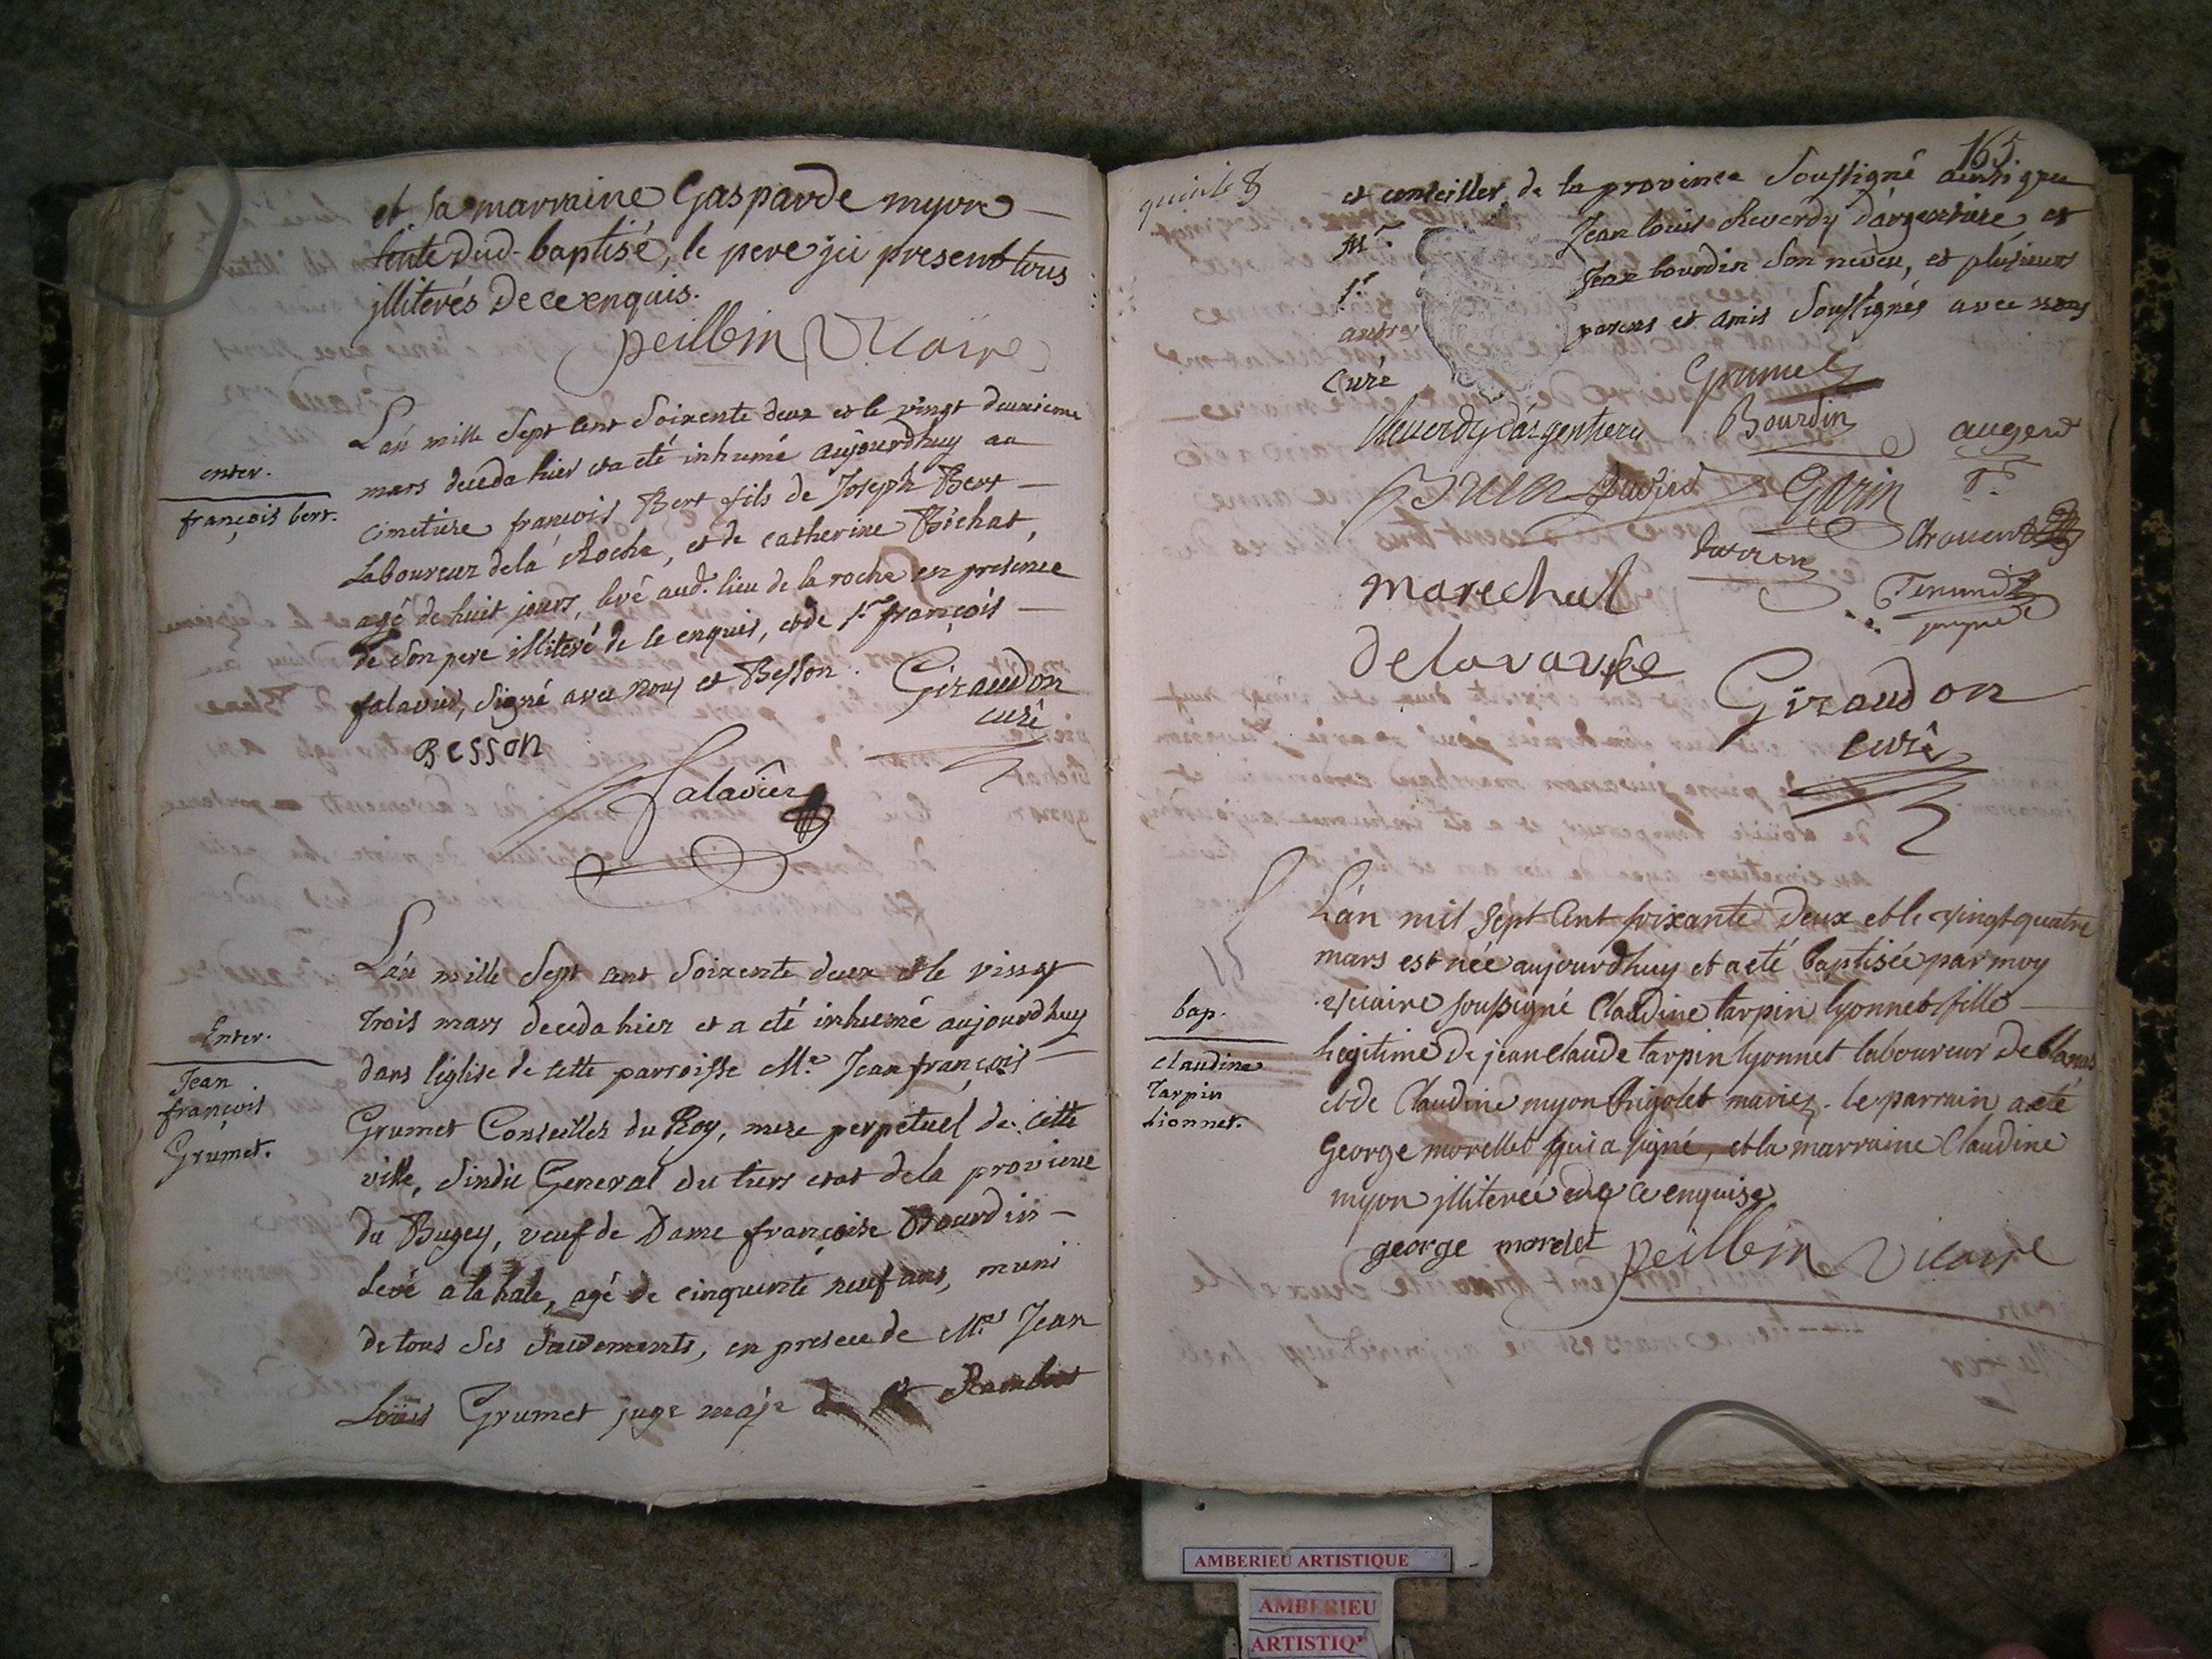 et sa marraine Gasparde myon
tente dud. baptisé, le pere ici present tous
illiterés de ce enquis.
peillein Vicaire
enter.
françois bert.
L'an mille sept cent soixente deux et le vingt deuxieme
mars deceda hier et a eté inhumé aujourdhuy au
cimetiere françois Bert fils de Joseph Bert
Laboureur de la Roche, et de catherine Bichat,
agé de huit jours, levé aud. lieu de la roche en presence
de son pere illiteré de le enquis, et de Sr. françois
falavier, signé avec nous et Besson.
Giraudon
curé
Besson
falavier
Enter.
Jean
françois
Grumet.
L'an mille sept cent soixente deux et le vingt
trois mars deceda hier et a eté inhumé aujourdhuy
dans l'eglise de cette parroisse Me. Jean françois
Grumet Conseiller du Roy, mere perpetuel de cette
ville, sindic General du tiers etat de la province
du Bugey, veuf de Dame françoise Bourdin
Levé a la hale, agé de cinquente neuf ans, muni
de tous ses sacrements, en presence de Mrs Jean
Loüis Grumet juge maje de St Rambert
165
et conseiller de la province soussigné ainsi que
Mr. Jean louis Reverdy d'argentiere, et
Sr. Jean bourdin son neveu, et plusieurs
autres parens et amis soussignés avec nous
Curé
Grumet
Reverdy d'argentiere Bourdin auger
Garin
marechal
delavavre
Giraudon
curé
bap.
claudine
Tarpin
Lionnet.
L'an mil sept Cent soixante deux et le vingt quatre
mars est née aujourdhuy et a eté baptisée par moy
vicaire soussigné Claudine tarpin lyonnet fille
legitime de jean claude tarpin lyonnet laboureur de blanas
et de Claudine myon Rigolet mariez. le parrain a eté
George morellet qui a signé, et la marraine Claudine
myon illiterée de ce enquise
george morelet peillein Vicaire
AMBERIEU ARTISTIQUE
AMBERIEU
ARTISTIQ